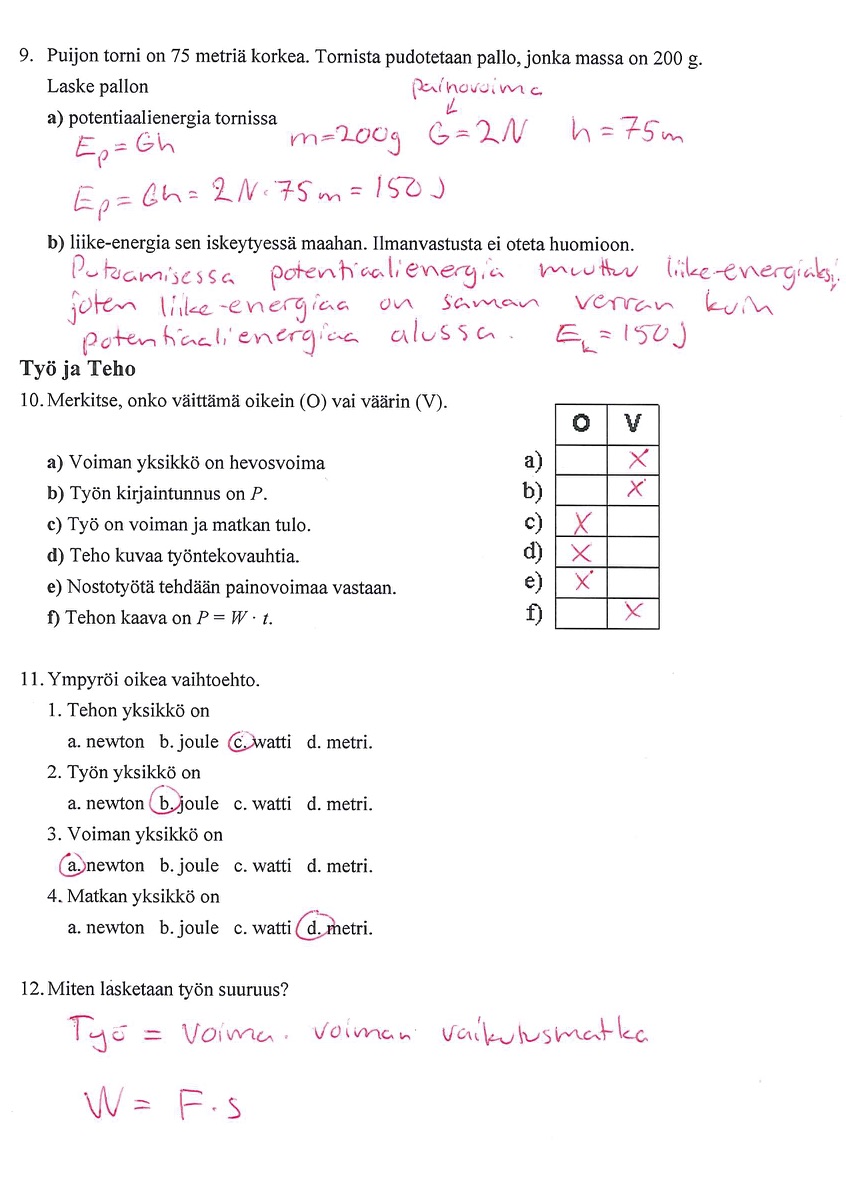 9. Puijon torni on 75 metriä korkea. Tornista pudotetaan pallo, jonka massa on 200 g.
Laske pallon
painovoima
a) potentiaalienergia tornissa
Ep = Gh m=200g G=2N h=75m
Ep = Gh = 2N·75m = 150J
b) liike-energia sen iskeytyessä maahan. Ilmanvastusta ei oteta huomioon.
Putoamisessa potentiaalienergia muuttuu liike-energiaksi,
joten liike-energiaa on saman verran kuin
potentiaalienergiaa alussa. Ek = 150J
Työ ja Teho
10. Merkitse, onko väittämä oikein (O) vai väärin (V).
O V
a) Voiman yksikkö on hevosvoima a) X
b) Työn kirjaintunnus on P. b) X
c) Työ on voiman ja matkan tulo. c) X
d) Teho kuvaa työntekovauhtia. d) X
e) Nostotyötä tehdään painovoimaa vastaan. e) X
f) Tehon kaava on P = W · t. f) X
11. Ympyröi oikea vaihtoehto.
1. Tehon yksikkö on
a. newton b. joule c. watti d. metri.
2. Työn yksikkö on
a. newton b. joule c. watti d. metri.
3. Voiman yksikkö on
a. newton b. joule c. watti d. metri.
4. Matkan yksikkö on
a. newton b. joule c. watti d. metri.
12. Miten lasketaan työn suuruus?
Työ = voima · voiman vaikutusmatka
W = F·s